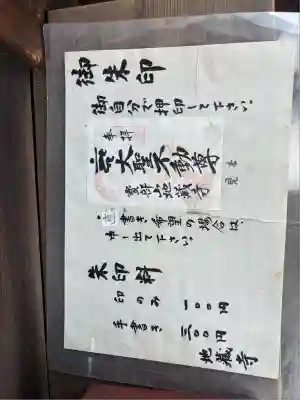 御朱印
御自分で押印して下さい。
奉拝
大聖不動尊
地蔵寺
直書き希望の場合は、
申し出て下さい。
朱印料
印のみ 一〇〇円
手書き 三〇〇円
地蔵寺